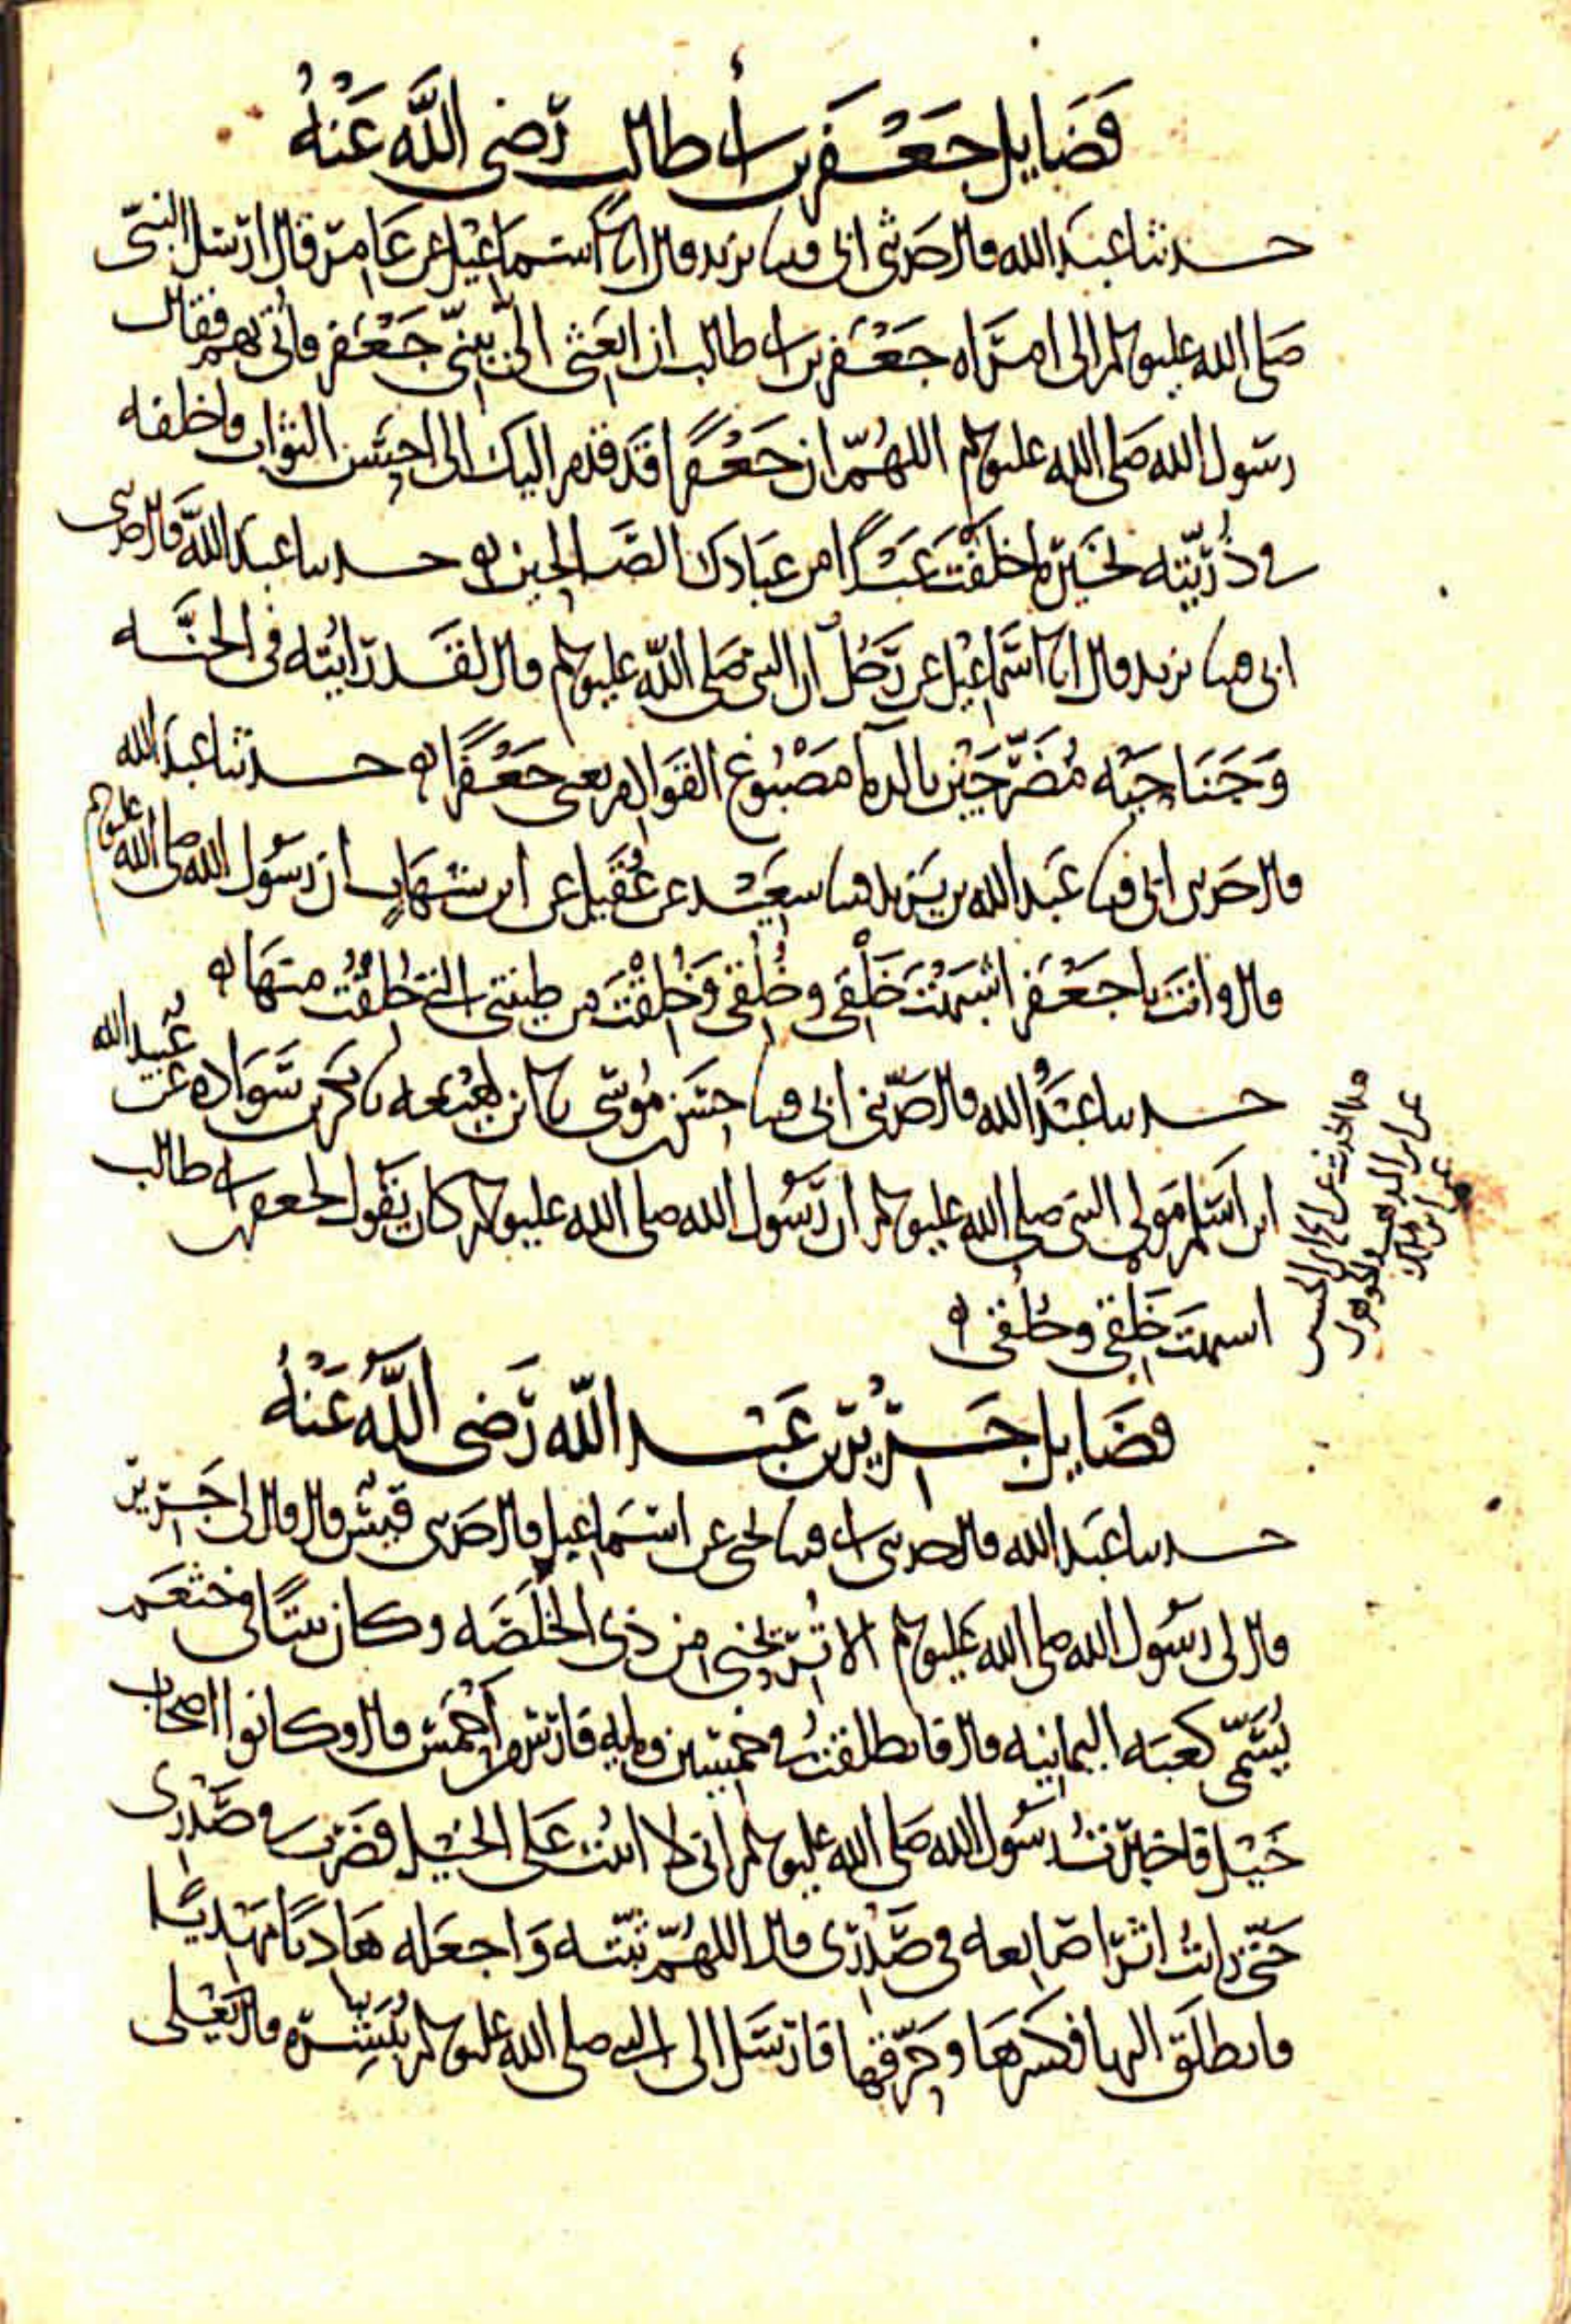 فَضَايل جَعْفَر بن أبى طالب رَّضى اللَّه عَنْهُ
حدثنا عبد الله قال حدثنى ابى قثنا يزيد قال انا اسماعيل عن عامر قال ارسل النبى
صلى الله عليه وسلم الى امراه جعفر بن ابى طالب ان ابعثى الىّ بنى جعفر فاتى بهم فقال
رسول الله صلى الله عليه وسلم اللهُمّ ان جعفرًا قد قدم اليك الى احسن الثواب فاخلفه
فى ذُرّيّته بخير ما خلفت عبدًا من عبادك الصَّالحين حدثنا عبد الله قال حدثنى
ابى قثنا يزيد قال انا اسماعيل عن رَجُل ان النبى صلى الله عليه وسلم قال لقد رايته فى الجنَّه
وَجَنَاحَيْه مُضَرَّجَيْن بالدما مَصْبُوغ القَوَادم يعنى جَعْفَرًا حدثنا عبد الله
قال حدثنى ابى قثنا عبد الله بن يزيد قثنا سعيد عن عُقَيل عن ابن شهَاب ان رسُول الله صلى الله عليه وسلم
قال وانتَ يا جَعْفَر اشبَهْتَ خَلْقى وخُلُقى وَخُلِقْتَ من طينتى التى خُلِقْتُ منهَا
حدثنا عبْدُ الله قال حدّثنى ابى قثنا حسَن بن مُوسَى نا ابن لَهِيْعَه نا بكر بن سَوَاده عن عُبيد الله
ابن اَسْلم مَولى النبى صلى الله عليه وسلم ان رَّسُول الله صلى الله عليه وسلم كان يَقُول لجعفر بن ابى طالب
اشبهتَ خَلْقى وخُلُقى
فضَايل جَرِيْر بن عَبْد اللّه رَّضى اللَّهُ عَنْهُ
حدثنا عَبد الله قال حدثنى ابى قثنا يحيى عن اسمَاعيل قال حدثنى قيْس قال قال لى جَرير
قال لى رسُول الله صلى الله عليه وسلم الا تُريْحُنى من ذى الخَلَصَه وكان بيتًا فى خثعَم
يُسَمّى كعبَه اليمانيه قال فانطلقتُ فى خمسين ومايه فارس من اَحْمَس قال وكانوا اصحَاب
خَيْل فاخبَرتُ رسُول الله صَلى الله عليه وسلم انى لا اثبُت عَلى الخَيْل فضَرب فى صَدْرى
حَتى رايتُ اثرَ اصَابعه فى صَدْرى قال اللهُمّ ثبّته وَاجعَله هَاديًا مَهْديًّا
فانطلَق اليها فكسَرهَا وحَرّقها فارسَل الى النبى صلى الله عليه وسلم يُبَشِّره قال يَعْلى